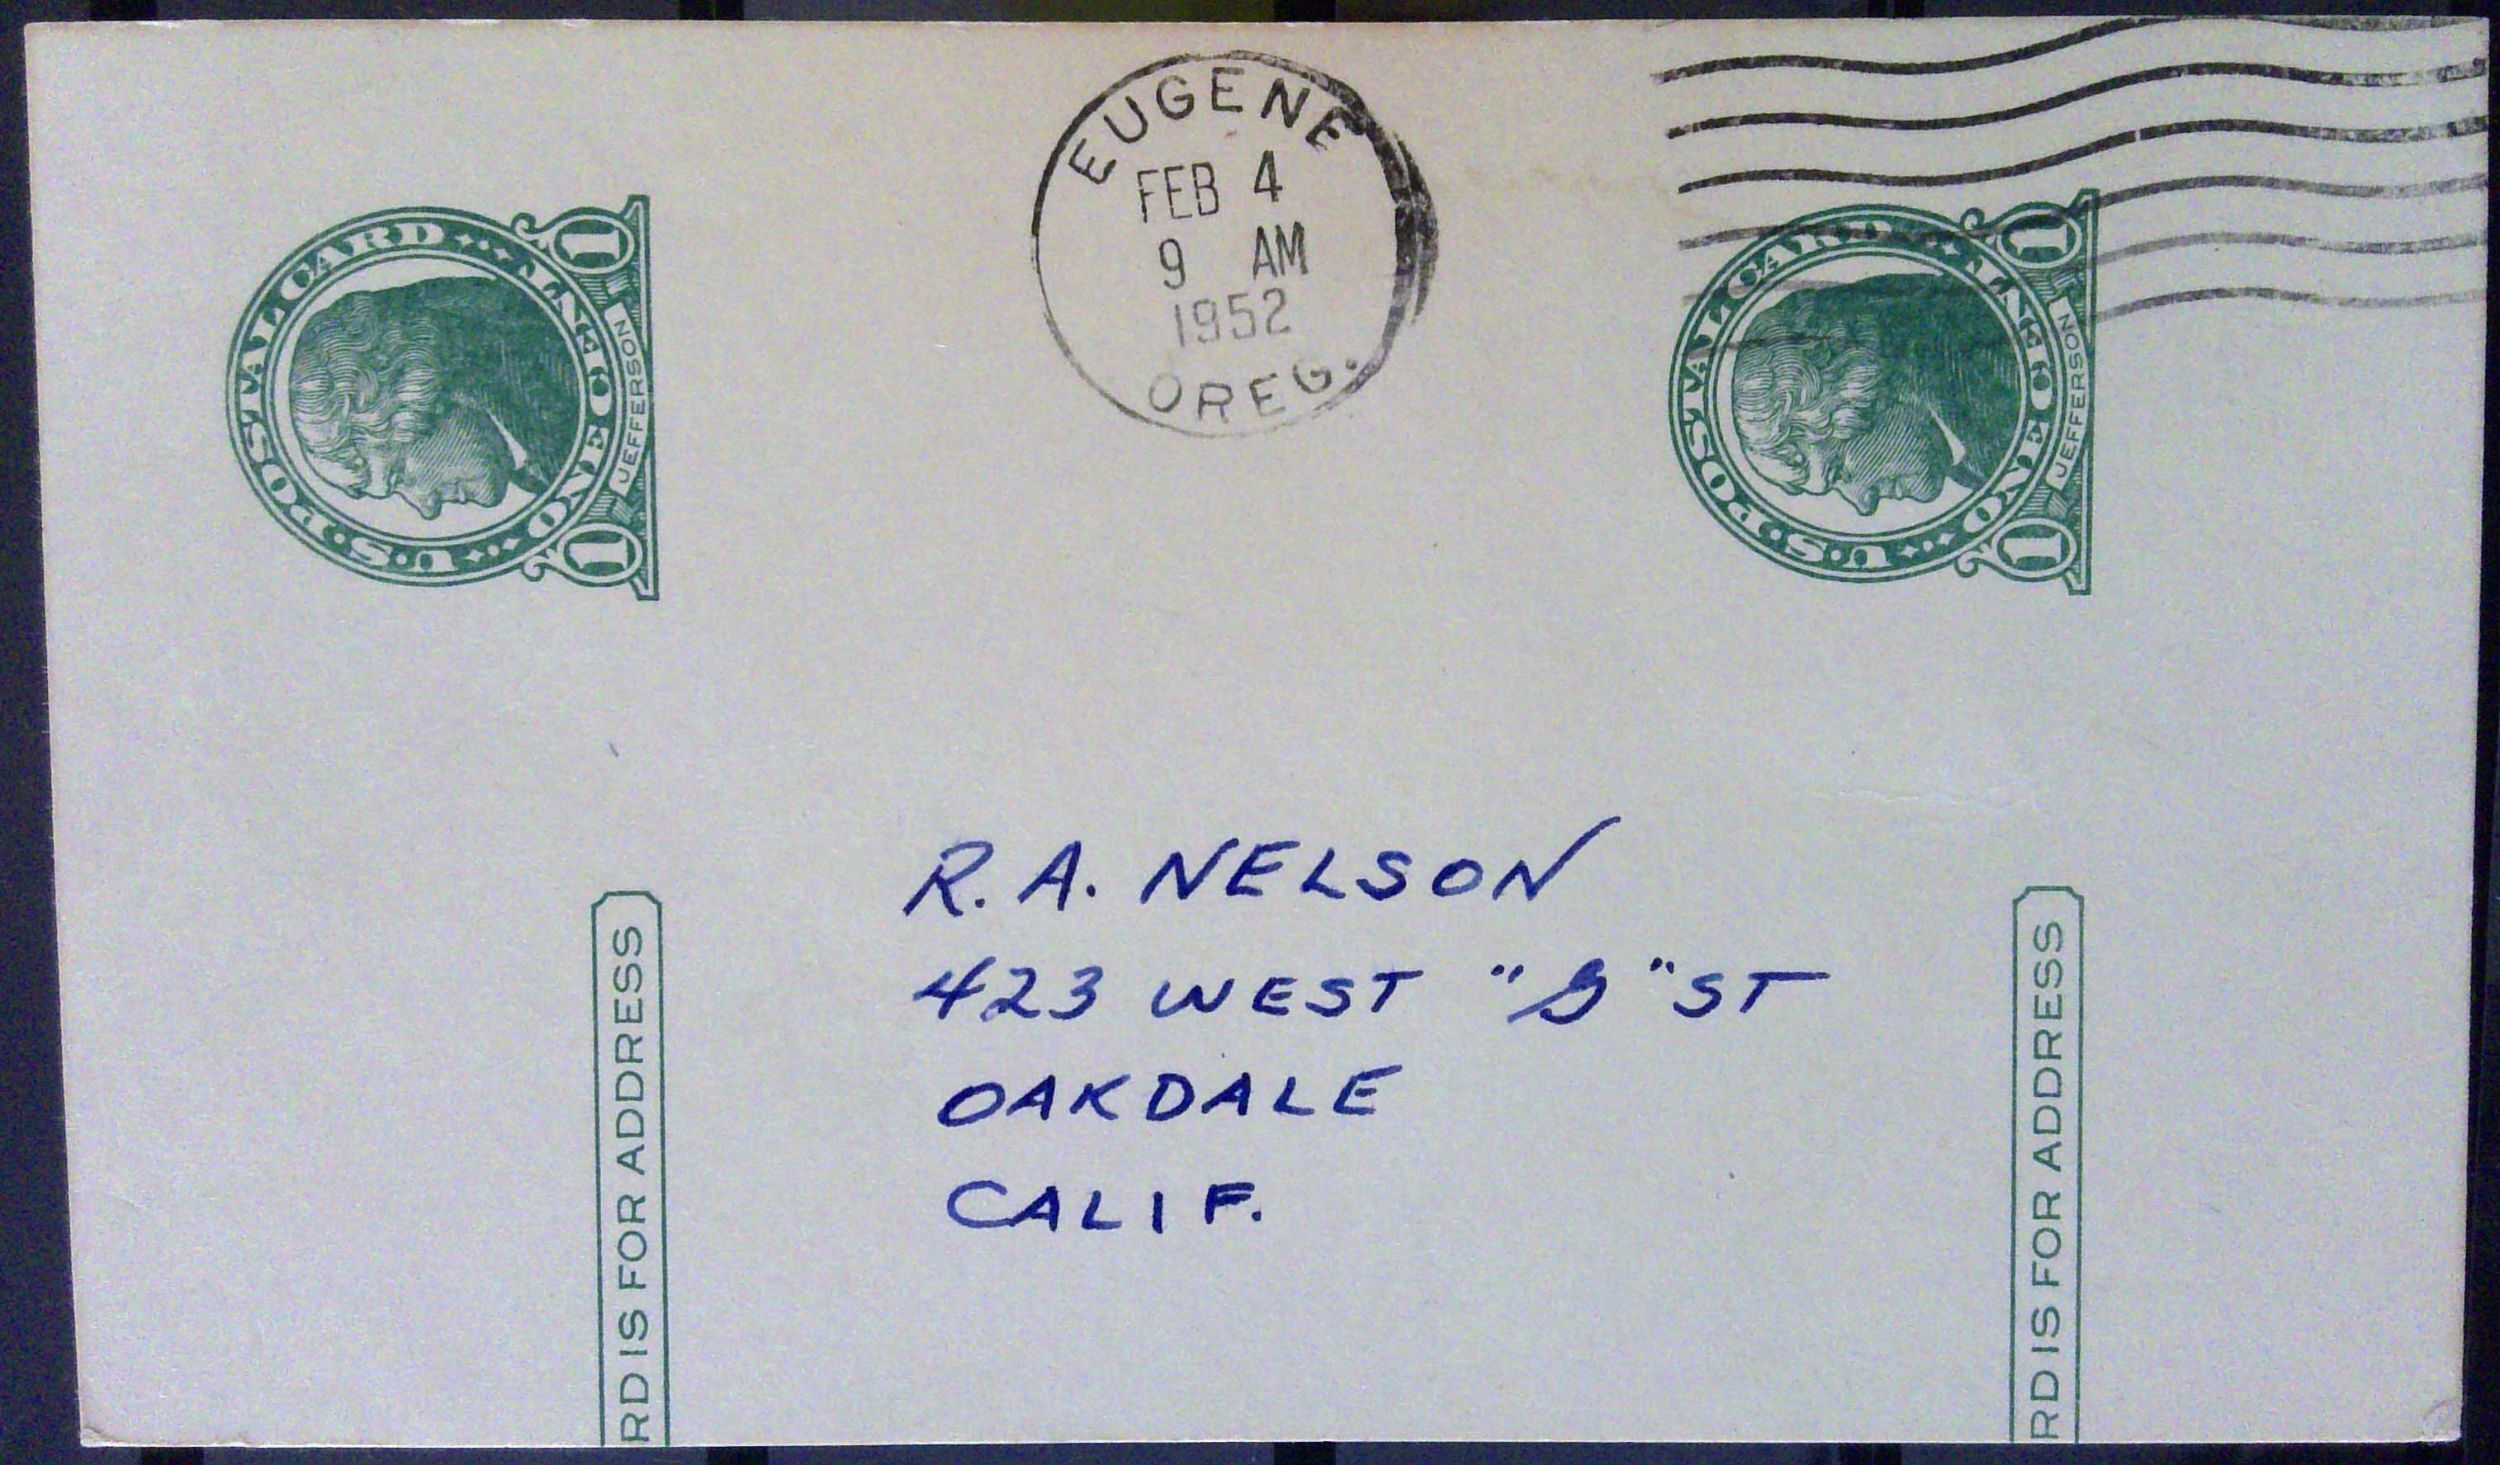 EUGENE
FEB 4
9 AM
1952
OREG.
U.S. POSTAL CARD
ONE CENT
1 1
JEFFERSON
U.S. POSTAL CARD
ONE CENT
1 1
JEFFERSON
R. A. NELSON
423 WEST "G" ST
OAKDALE
CALIF.
RD IS FOR ADDRESS
RD IS FOR ADDRESS